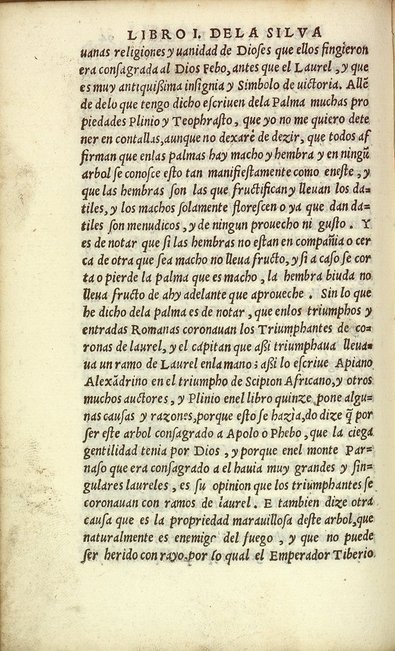 LIBRO I. DELA SILVA
uanas religiones y uanidad de Dioses que ellos fingieron
era consagrada al Dios Febo, antes que el Laurel, y que
es muy antiquißima insignia y Simbolo de uictoria. Allẽ
de delo que tengo dicho escriuen dela Palma muchas pro
piedades Plinio y Teophrasto, que yo no me quiero dete
ner en contallas, aunque no dexarè de dezir, que todos af
firman que enlas palmas hay macho y hembra y en ningũ
arbol se conosce esto tan manifiestamente como eneste, y
que las hembras son las que fructifican y lleuan los da-
tiles, y los machos solamente florescen o ya que dan da-
tiles son menudicos, y de ningun prouecho ni gusto. Y
es de notar que si las hembras no estan en compañia o cer
ca de otra que sea macho no lleua fructo, y si a caso se cor
ta o pierde la palma que es macho, la hembra biuda no
lleua fructo de ahy adelante que aproueche. Sin lo que
he dicho dela palma es de notar, que enlos triumphos y
entradas Romanas coronauan los Triumphantes de co-
ronas de laurel, y el capitan que aßi triumphaua lleua-
ua un ramo de Laurel enla mano: aßi lo escriue Apiano
Alexãdrino en el triumpho de Scipion Africano, y otros
muchos auctores, y Plinio enel libro quinze, pone algu-
nas causas y razones, porque esto se hazia, do dize q̃ por
ser este arbol consagrado a Apolo o Phebo, que la ciega
gentilidad tenia por Dios, y porque enel monte Par-
naso que era consagrado a el hauia muy grandes y sin-
gulares laureles, es su opinion que los triumphantes se
coronauan con ramos de laurel. E tambien dize otra
causa que es la propriedad marauillosa deste arbol, que
naturalmente es enemigo del fuego, y que no puede
ser herido con rayo, por lo qual el Emperador Tiberio